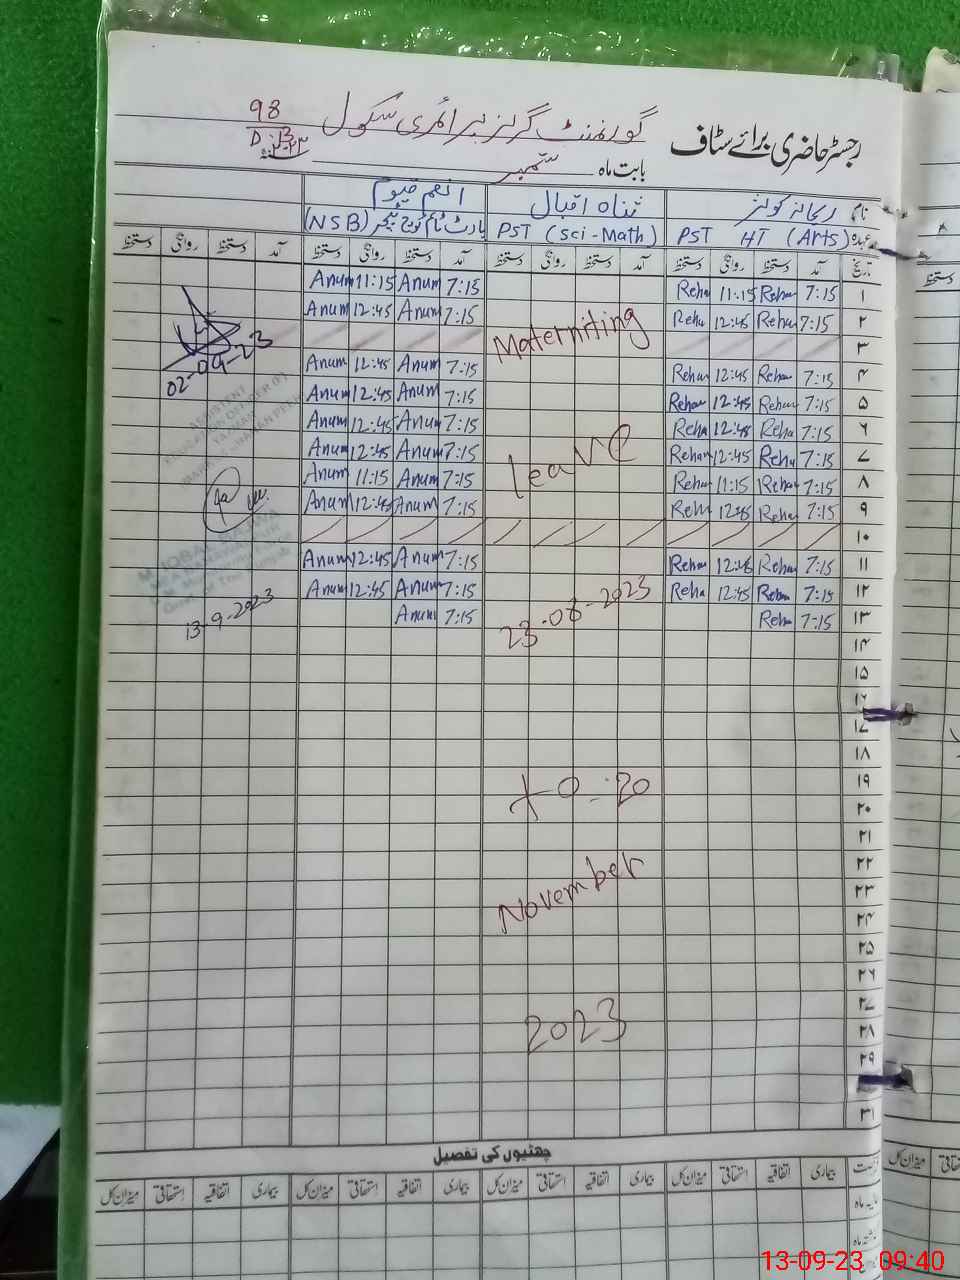 98
گورنمنٹ گرلز پرائمری سکول
رجسٹر حاضری برائے سٹاف
بابت ماہ ستمبر
نام ریحانہ کوثر ثناء اقبال انعم قیوم
عہدہ PST HT (Arts) PST (Sci-Math) پارٹ ٹائم کوچ ٹیچر (NSB)
تاریخ آمد دستخط روانگی دستخط آمد دستخط روانگی دستخط آمد دستخط روانگی دستخط آمد دستخط روانگی دستخط
۱ 7:15 Reha 11:15 Reha 7:15 Anum 11:15 Anum
۲ 7:15 Reha 12:45 Reha 7:15 Anum 12:45 Anum
Materniting
۳
02-09-23
۴ 7:15 Reha 12:45 Reha 7:15 Anum 12:45 Anum
۵ 7:15 Reha 12:45 Reha 7:15 Anum 12:45 Anum
۶ 7:15 Reha 12:45 Reha 7:15 Anum 12:45 Anum
۷ 7:15 Reha 12:45 Reha 7:15 Anum 12:45 Anum
leave
۸ 7:15 Reha 11:15 Reha 7:15 Anum 11:15 Anum
۹ 7:15 Reha 12:45 Reha 7:15 Anum 12:45 Anum
۱۰
۱۱ 7:15 Reha 12:45 Reha 7:15 Anum 12:45 Anum
۱۲ 7:15 Reha 12:45 Reha 7:15 Anum 12:45 Anum
۱۳ 7:15 Reha 7:15 Anum
23-08-2023
13-9-2023
۱۴
۱۵
۱۶
۱۷
۱۸
۱۹
to 20
۲۰
۲۱
۲۲
November
۲۳
۲۴
۲۵
۲۶
۲۷
۲۸
2023
۲۹
۳۱
چھٹیوں کی تفصیل
بیماری اتفاقیہ استحقاقی میزان کل بیماری اتفاقیہ استحقاقی میزان کل بیماری اتفاقیہ استحقاقی میزان کل بیماری اتفاقیہ استحقاقی میزان کل
13-09-23 09:40